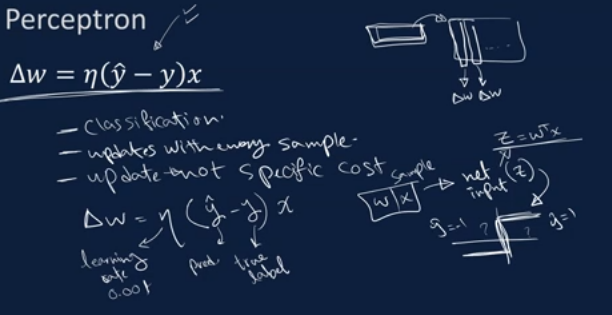 Perceptron
Δw = η(ŷ − y)x
Δw Δw
- Classification.
- updates with every sample.
- update not specific cost
z = wᵀx
sample
w x
net input (z)
ŷ=-1 ? ? ŷ=1
Δw = η (ŷ-y) x
learning rate 0.001
pred.
true label